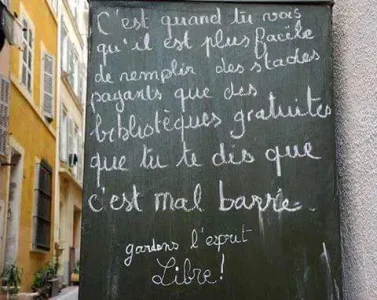 C'est quand tu vois
qu'il est plus facile
de remplir des stades
payants que des
bibliotèques gratuites
que tu te dis que
c'est mal barré.
gardons l'esprit
Libre!